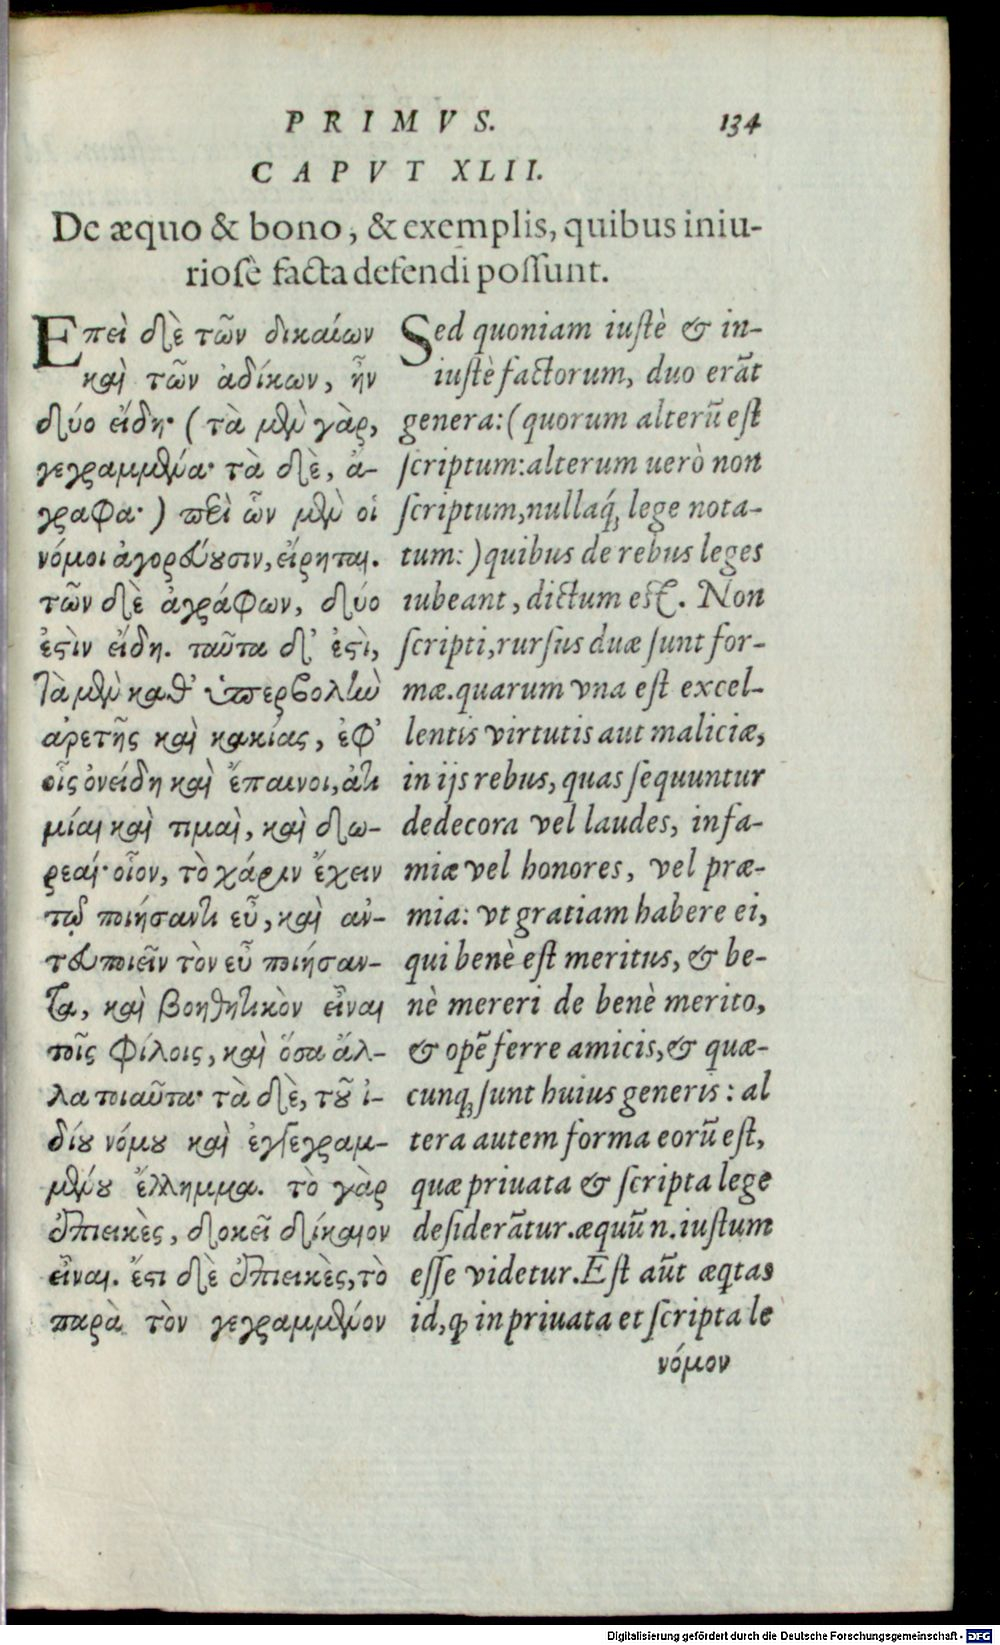 PRIMVS. 134
CAPVT XLII.
De æquo & bono, & exemplis, quibus iniu-
riosè facta defendi possunt.
Ἐπεὶ δὲ τῶν δικαίων
καὶ τῶν ἀδίκων, ἦν
δύο εἴδη· (τὰ μὲν γὰρ,
γεγραμμένα· τὰ δὲ, ἄ-
γραφα·) περὶ ὧν μὲν οἱ
νόμοι ἀγορεύουσιν, εἴρηται.
τῶν δὲ ἀγράφων, δύο
ἐστὶν εἴδη. ταῦτα δ' ἐστὶ,
τὰ μὲν καθ' ὑπερβολὴν
ἀρετῆς καὶ κακίας, ἐφ'
οἷς ὀνείδη καὶ ἔπαινοι, ἀτι
μίαι καὶ τιμαὶ, καὶ δω-
ρεαί· οἷον, τὸ χάριν ἔχειν
τῷ ποιήσαντι εὖ, καὶ ἀν-
τευποιεῖν τὸν εὖ ποιήσαν-
τα, καὶ βοηθητικὸν εἶναι
τοῖς φίλοις, καὶ ὅσα ἄλ-
λα τοιαῦτα· τὰ δὲ, τοῦ ἰ-
δίου νόμου καὶ ἐγγεγραμ-
μένου ἔλλημμα. τὸ γὰρ
ἐπιεικὲς, δοκεῖ δίκαιον
εἶναι. ἔστι δὲ ἐπιεικὲς, τὸ
παρὰ τὸν γεγραμμένον
Sed quoniam iustè & in-
iustè factorum, duo erāt
genera: (quorum alterū est
scriptum: alterum uerò non
scriptum, nullaq́; lege nota-
tum:) quibus de rebus leges
iubeant, dictum est. Non
scripti, rursus duæ sunt for-
mæ. quarum vna est excel-
lentis virtutis aut maliciæ,
in ijs rebus, quas sequuntur
dedecora vel laudes, infa-
miæ vel honores, vel præ-
mia: vt gratiam habere ei,
qui benè est meritus, & be-
nè mereri de benè merito,
& opē ferre amicis, & quæ-
cunq; sunt huius generis: al
tera autem forma eorū est,
quæ priuata & scripta lege
desiderātur. æquū n. iustum
esse videtur. Est aūt æqtas
id, qꝫ in priuata et scripta le
νόμον
Digitalisierung gefördert durch die Deutsche Forschungsgemeinschaft - DFG